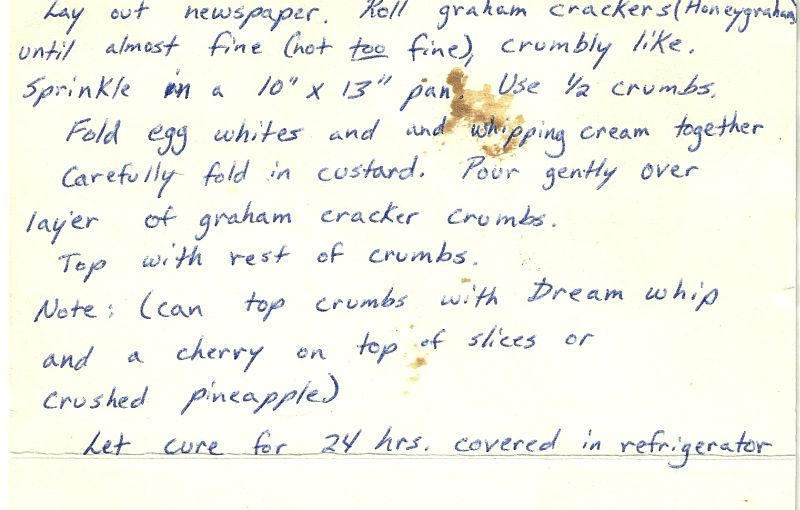 Lay out newspaper. Roll graham crackers (Honeygraham)
until almost fine (not too fine), crumbly like.
Sprinkle in a 10" x 13" pan. Use 1/2 crumbs.
Fold egg whites and and whipping cream together
Carefully fold in custard. Pour gently over
layer of graham cracker crumbs.
Top with rest of crumbs.
Note: (can top crumbs with Dream whip
and a cherry on top of slices or
crushed pineapple)
Let cure for 24 hrs. covered in refrigerator